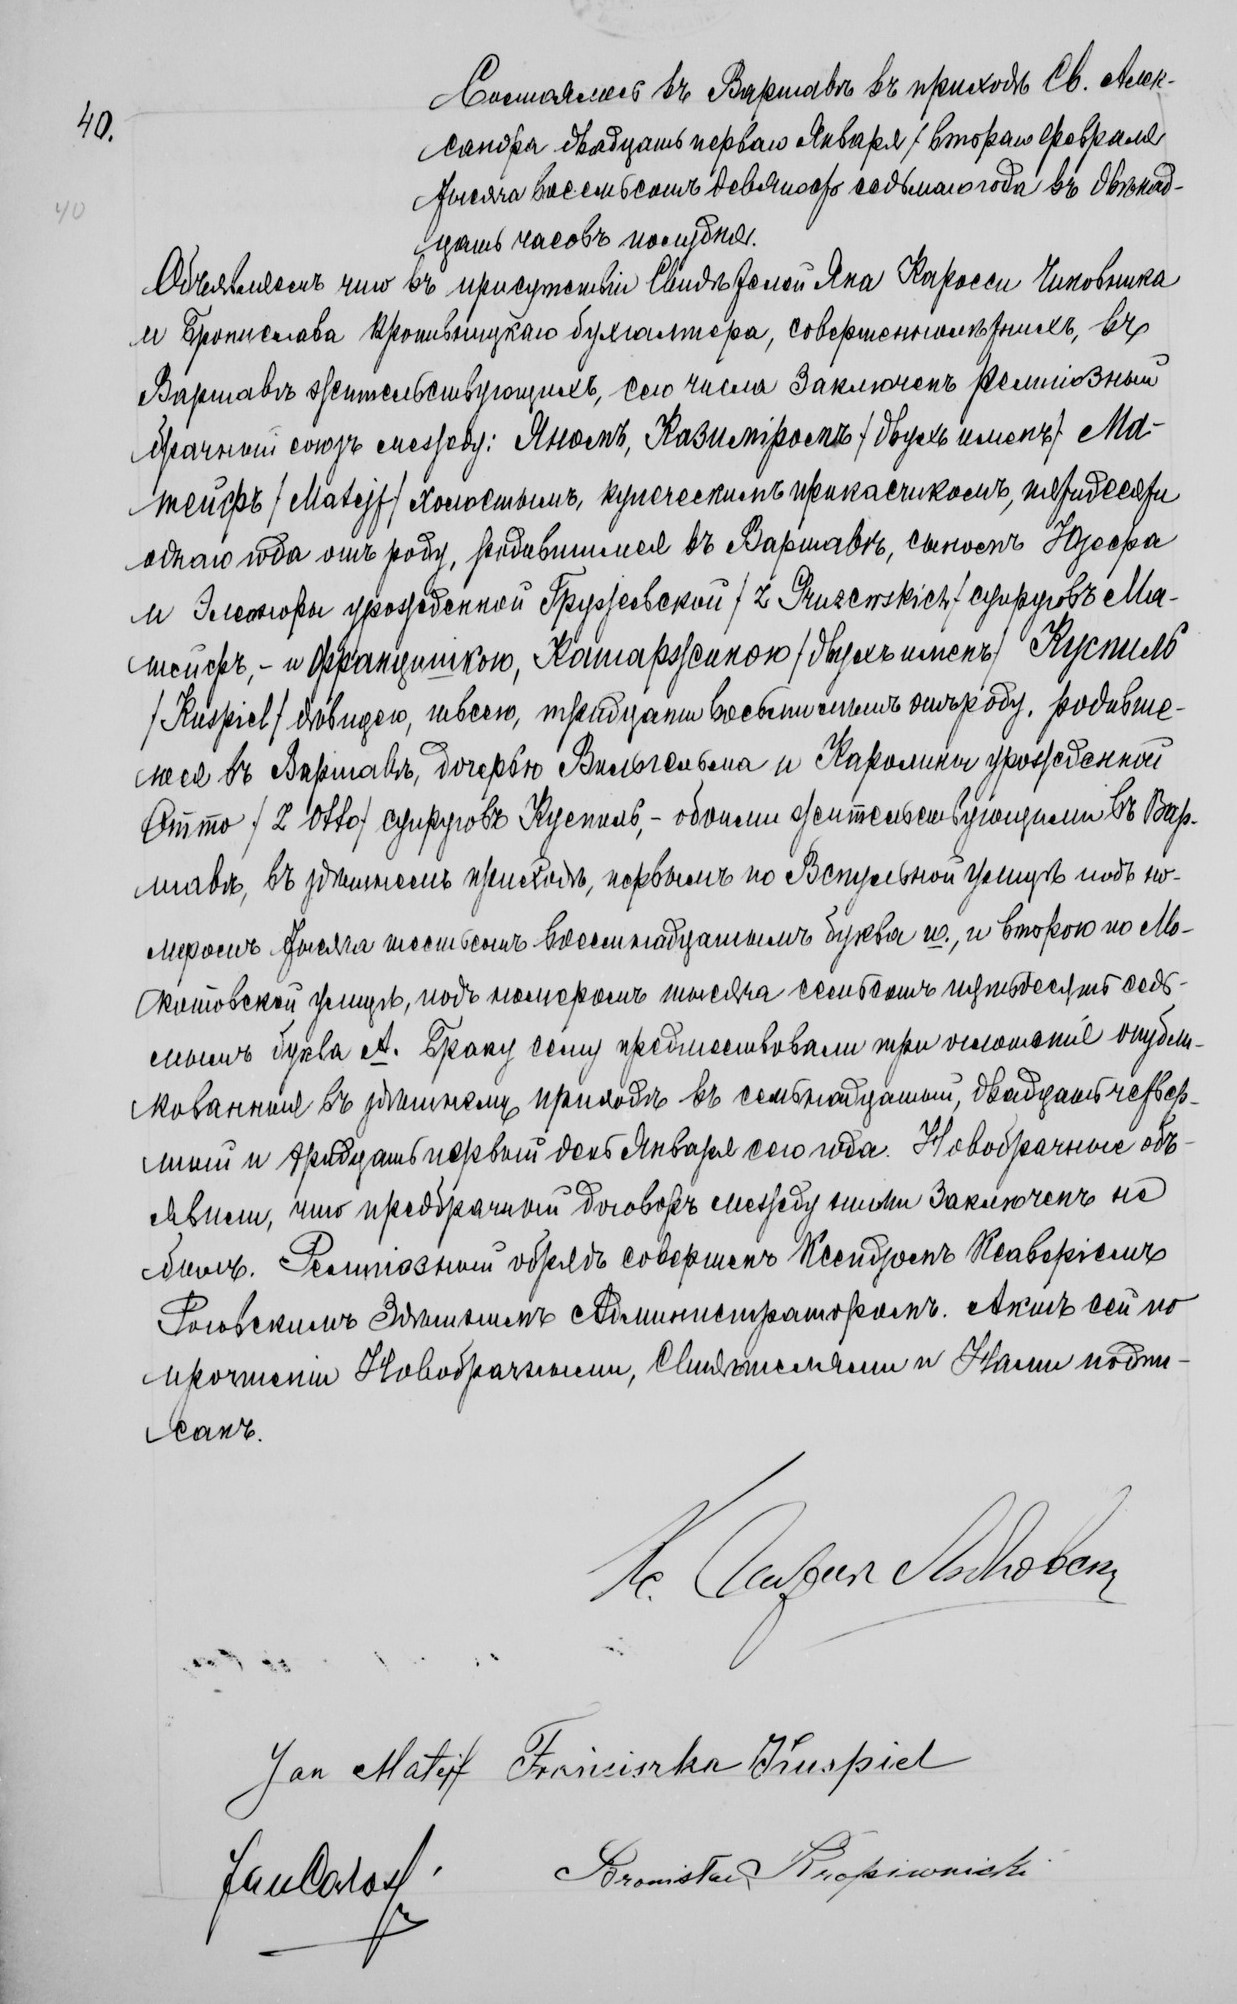 40.
40
Состоялось въ Варшавѣ въ приходѣ Св. Алек-
сандра двадцать перваго Января / втораго Февраля
тысяча восемьсотъ девяносто седьмаго года въ двѣнад-
цать часовъ полудня.
Объявляемъ что въ присутствіи Свидѣтелей Яна Каросси Чиновника
и Бронислава Кропивницкаго бухгалтера, совершеннолѣтнихъ, въ
Варшавѣ жительствующихъ, сего числа заключенъ религіозный
брачный союзъ между: Яномъ, Казиміромъ / двухъ именъ / Ма-
тейфъ / Matejf / холостымъ, купеческимъ приказчикомъ, пятидесяти
однаго года отъ роду, родившимся въ Варшавѣ, сыномъ Юзефа
и Элеоноры урожденной Гружевской / z Gruzewskich / супруговъ Ма-
тейфъ, - и Францишкою, Катаржиною / двухъ именъ / Куспиль
/ Kuspiel / дѣвицею, швеею, тридцати восьми лѣтъ отъ роду, родивше-
юся въ Варшавѣ, дочерью Вильгельма и Каролины урожденной
Отто / z Otto / супруговъ Куспиль, - обоими жительствующими въ Вар-
шавѣ, въ здѣшнемъ приходѣ, первымъ по Вспульной улицѣ подъ но-
меромъ тысяча шестьсотъ восемнадцатымъ буква ю., и второю по Мо-
котовской улицѣ, подъ номеромъ тысяча семьсотъ пятьдесятъ седь-
мымъ буква А. Браку сему предшествовали три оглашенія опубли-
кованныя въ здѣшнемъ приходѣ въ семьнадцатый, двадцать четвер-
тый и тридцать первый день Января сего года. Новобрачные объ-
явили, что предбрачный договоръ между ними заключенъ не
былъ. Религіозный обрядъ совершенъ Ксендзомъ Ксаверіемъ
Роговскимъ Здѣшнимъ Администраторомъ. Актъ сей по
прочтеніи Новобрачными, Свидѣтелями и Нами подпи-
санъ.
Jan Matejf Franciszka Kuspiel
Jan Carossi
Bronisław Kropiwnicki